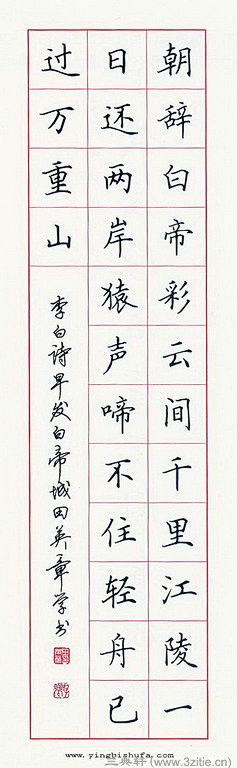 朝辞白帝彩云间千里江陵一
日还两岸猿声啼不住轻舟已
过万重山
李白诗早发白帝城田英章学书
www.yingbishufa.com
兰典轩(www.3zitie.cn)